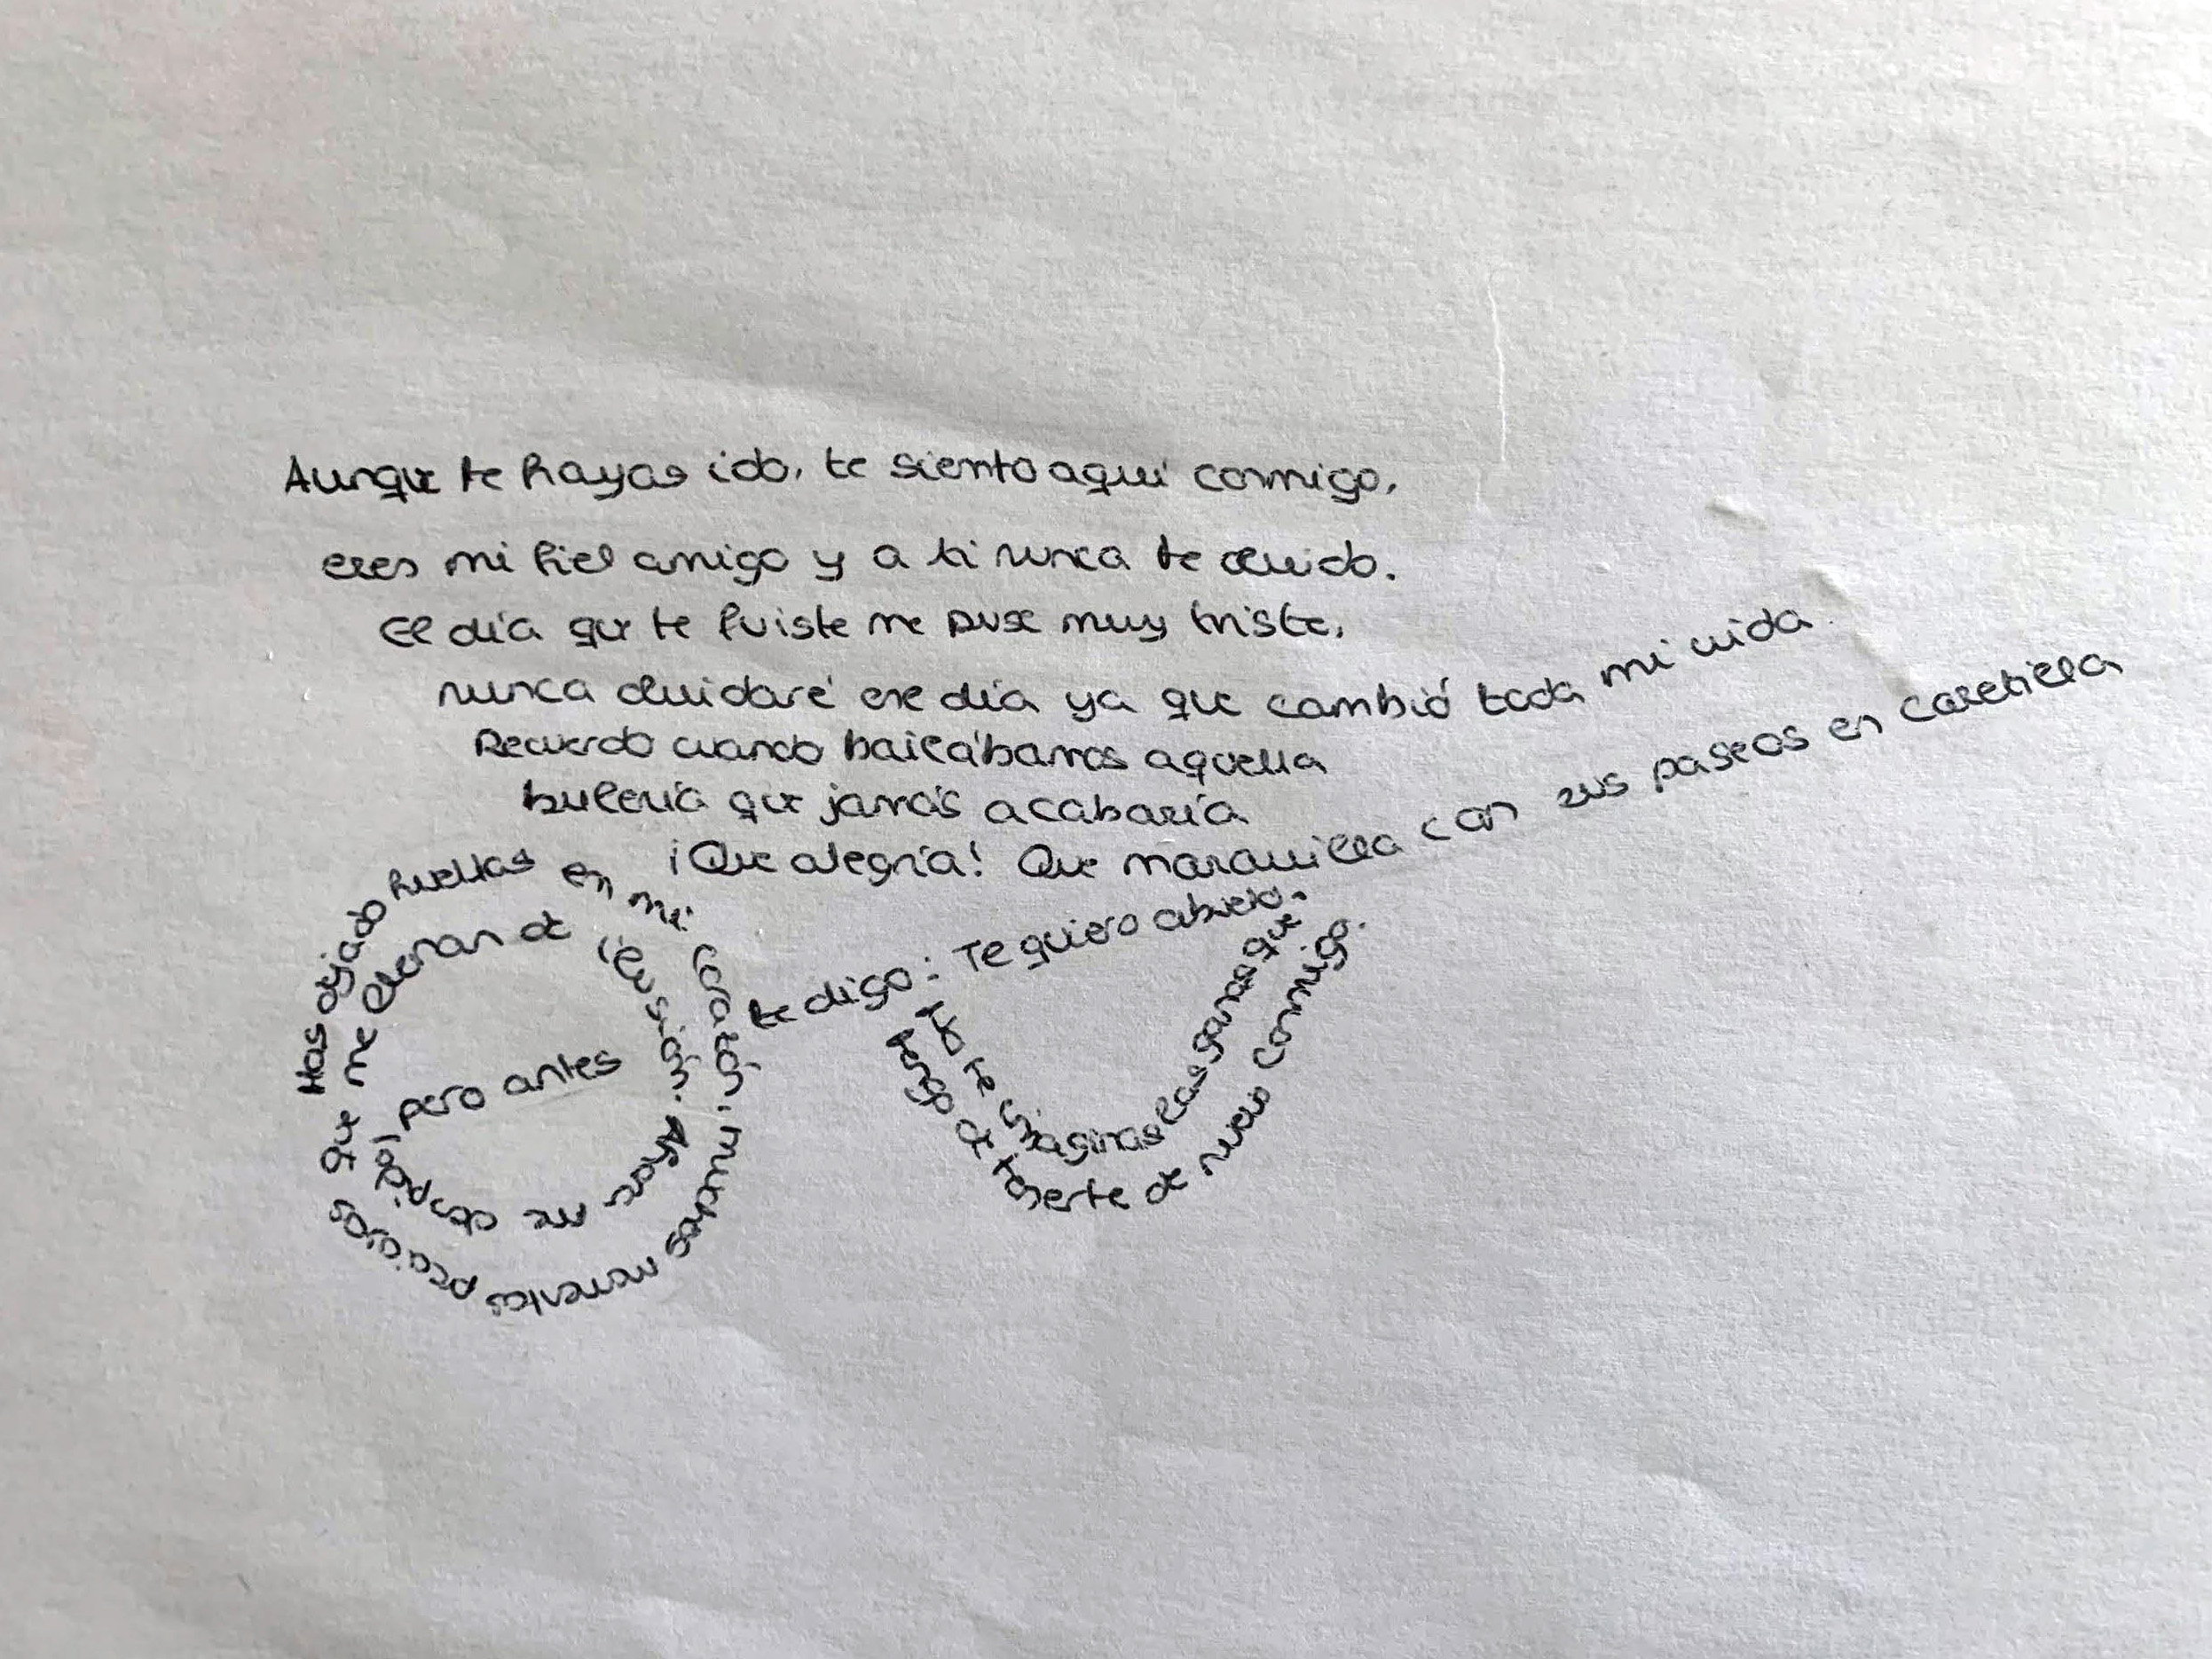 Aunque te hayas ido, te siento aquí conmigo,
eres mi fiel amigo y a ti nunca te olvido.
El día que te fuiste me puse muy triste,
nunca olvidaré ese día ya que cambió toda mi vida.
Recuerdo cuando bailábamos aquella
bulería que jamás acabaría
¡Que alegría! Que maravilla con sus paseos en carretilla
Has dejado huellas en mi corazón, muchos momentos preciosos
que me llenan de ilusión. Ahora me despido,
pero antes te digo: Te quiero abuelo.
No te imaginas las ganas que
tengo de tenerte de nuevo conmigo.